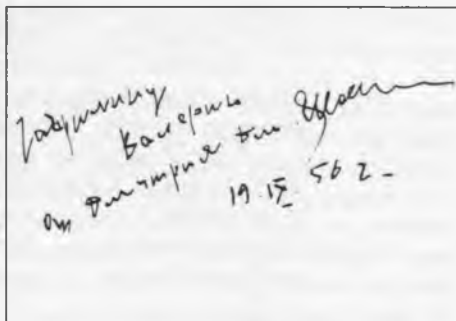 Гаврилину
Валерию
от Дмитрия
19.IX.56 г.